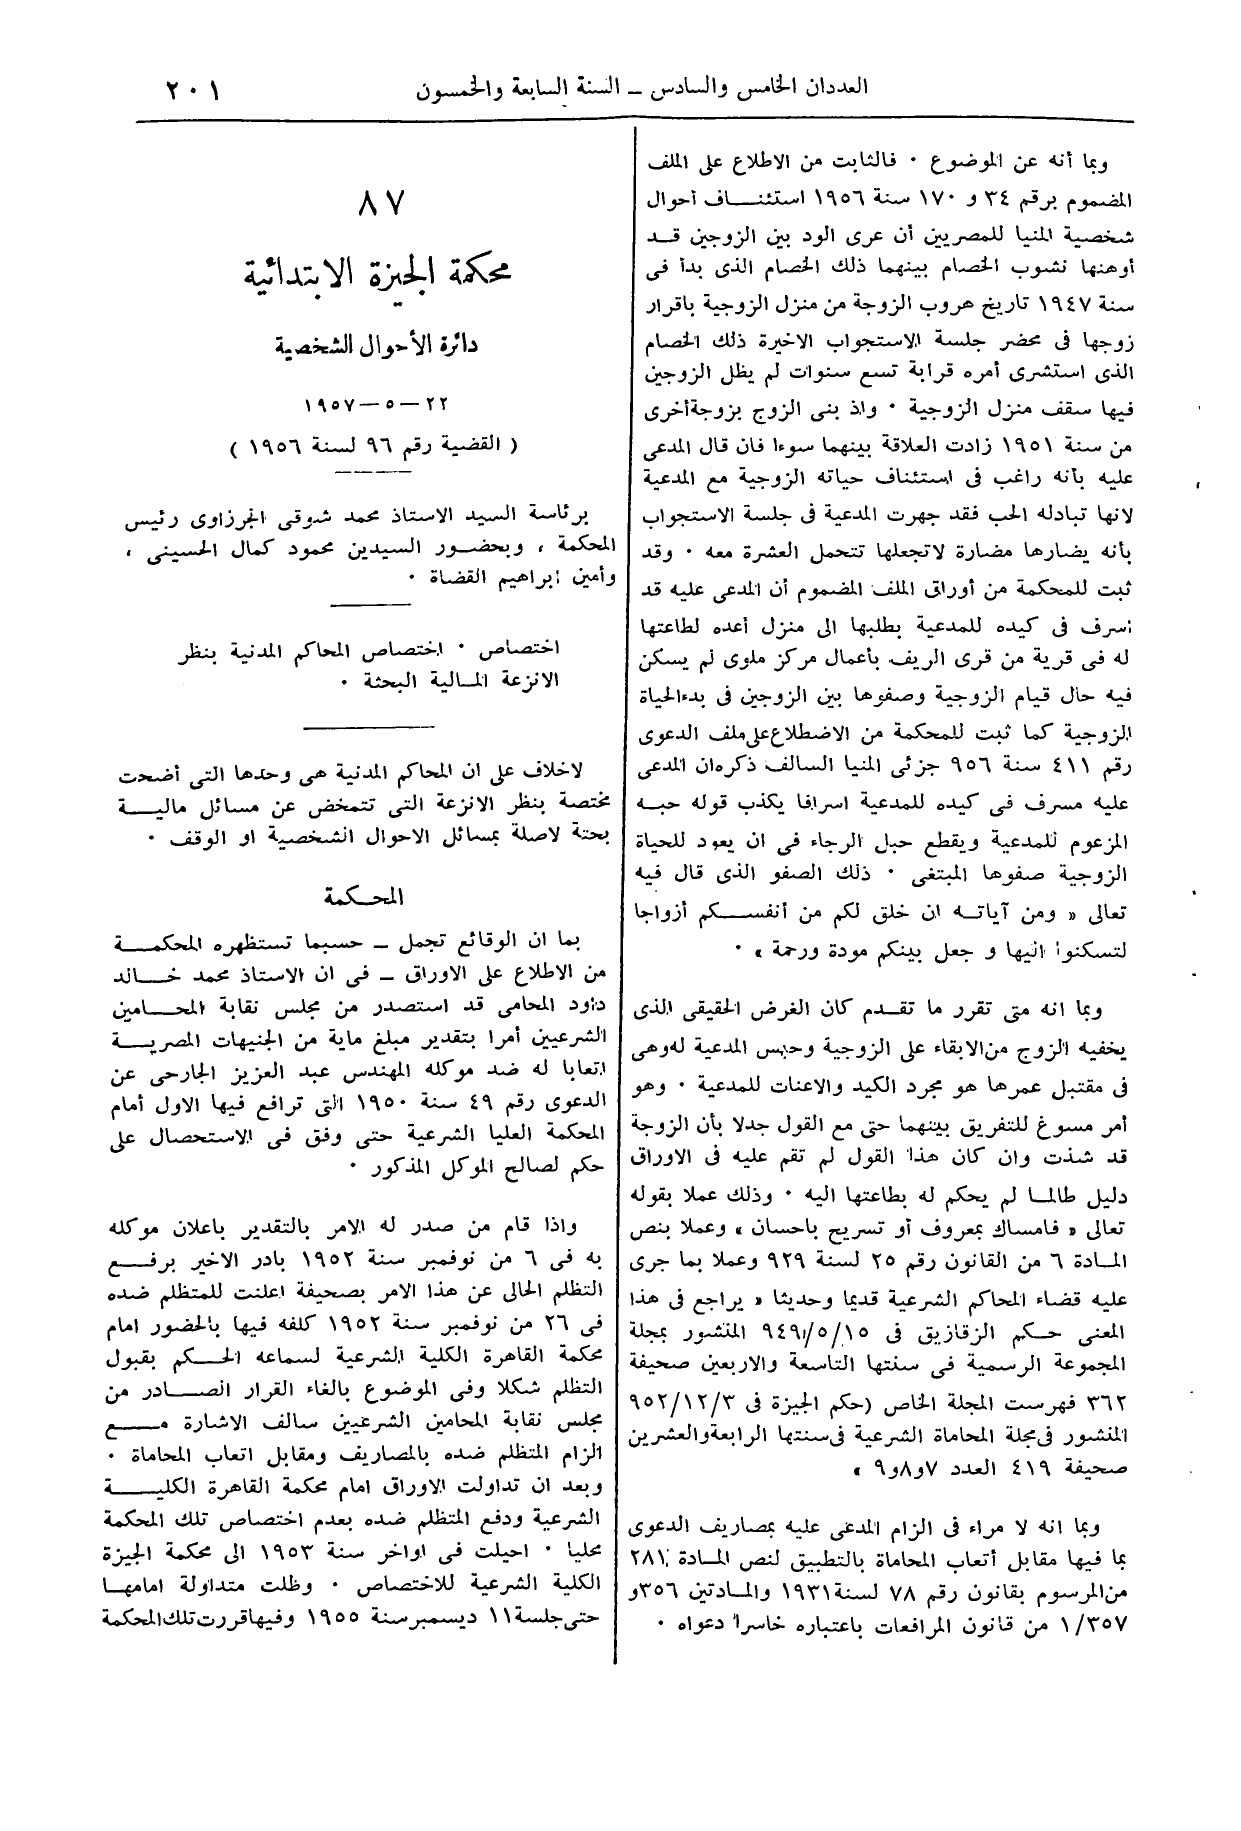 العددان الخامس والسادس – السنة السابعة والخمسون
٢٠١
وبما أنه عن الموضوع ٠ فالثابت من الاطلاع على الملف
المضموم برقم ٣٤ و ١٧٠ سنة ١٩٥٦ استئنـاف أحوال
شخصية المنيا للمصريين أن عرى الود بين الزوجين قـد
أوهنها نشوب الخصام بينهما ذلك الخصام الذى بدأ فى
سنة ١٩٤٧ تاريخ هروب الزوجة من منزل الزوجية باقرار
زوجها فى محضر جلسة الاستجواب الاخيرة ذلك الخصام
الذى استشرى أمره قرابة تسع سنوات لم يظل الزوجين
فيها سقف منزل الزوجية ٠ واذ بنى الزوج بزوجة أخرى
من سنة ١٩٥١ زادت العلاقة بينهما سوءا فان قال المدعى
عليه بأنه راغب فى استئناف حياته الزوجية مع المدعية
لانها تبادله الحب فقد جهرت المدعية فى جلسة الاستجواب
بأنه يضارها مضارة لاتجعلها تتحمل العشرة معه ٠ وقد
ثبت للمحكمة من أوراق الملف المضموم أن المدعى عليه قد
أسرف فى كيده للمدعية بطلبها الى منزل أعده لطاعتها
له فى قرية من قرى الريف بأعمال مركز ملوى لم يسكن
فيه حال قيام الزوجية وصفوها بين الزوجين فى بدء الحياة
الزوجية كما ثبت للمحكمة من الاضطلاع على ملف الدعوى
رقم ٤١١ سنة ٩٥٦ جزئى المنيا السالف ذكره ان المدعى
عليه مسرف فى كيده للمدعية اسرافا يكذب قوله حبـه
المزعوم للمدعية ويقطع حبل الرجاء فى ان يعود للحياة
الزوجية صفوها المبتغى ٠ ذلك الصفو الذى قال فيه
تعالى « ومن آياتـه ان خلق لكم من أنفسـكم أزواجا
لتسكنوا اليها و جعل بينكم مودة ورحمة » ٠
وبما انه متى تقرر ما تقـدم كان الغرض الحقيقى الذى
يخفيه الزوج من الابقاء على الزوجية وحبس المدعية له وهى
فى مقتبل عمرها هو مجرد الكيد والاعنات للمدعية ٠ وهو
أمر مسوغ للتفريق بينهما حتى مع القول جدلا بأن الزوجة
قد شذت وان كان هذا القول لم تقم عليه فى الاوراق
دليل طالمـا لم يحكم له بطاعتها اليه ٠ وذلك عملا بقوله
تعالى « فامساك بمعروف أو تسريح باحسان » وعملا بنص
المـادة ٦ من القانون رقم ٢٥ لسنة ٩٢٩ وعملا بما جرى
عليه قضاء المحاكم الشرعية قديما وحديثا « يراجع فى هذا
المعنى حـكم الزقازيق فى ٩٤٩/٥/١٥ المنشور بمجلة
المجموعة الرسمية فى سنتها التاسعة والاربعين صحيفة
٣٦٢ فهرست المجلة الخاص (حكم الجيزة فى ٩٥٢/١٢/٣
المنشور فى مجلة المحاماة الشرعية فى سنتها الرابعة والعشرين
صحيفة ٤١٩ العدد ٧و٨و٩ »
وبما انه لا مراء فى الزام المدعى عليه بمصاريف الدعوى
بما فيها مقابل أتعاب المحاماة بالتطبيق لنص المـادة ٢٨١
من المرسوم بقانون رقم ٧٨ لسنة ١٩٣١ والمـادتين ٣٥٦و
١/٣٥٧ من قانون المرافعات باعتباره خاسرا دعواه ٠
٨٧
محكمة الجيزة الابتدائية
دائرة الأحوال الشخصية
٢٢–٥–١٩٥٧
( القضية رقم ٩٦ لسنة ١٩٥٦ )
برئاسة السيد الاستاذ محمد شوقى الجرزاوى رئيس
المحكمة ، وبحضور السيدين محمود كمال الحسينى ،
وأمين ابراهيم القضاة ٠
اختصاص ٠ اختصاص المحاكم المدنية بنظر
الانزعة المـالية البحثة ٠
لاخلاف على ان المحاكم المدنية هى وحدها التى أضحت
مختصة بنظر الانزعة التى تتمخض عن مسائل ماليـة
بحتة لاصلة بمسائل الاحوال الشخصية او الوقف ٠
المحـكمة
بما ان الوقائع تجمل – حسبما تستظهره المحكمـة
من الاطلاع على الاوراق – فى ان الاستاذ محمد خـالد
داود المحامى قد استصدر من مجلس نقابة المحـامين
الشرعيين أمرا بتقدير مبلغ ماية من الجنيهات المصريـة
اتعابا له ضد موكله المهندس عبد العزيز الجارحى عن
الدعوى رقم ٤٩ سنة ١٩٥٠ التى ترافع فيها الاول أمام
المحكمة العليا الشرعية حتى وفق فى الاستحصال على
حكم لصالح الموكل المذكور ٠
واذا قام من صدر له الامر بالتقدير باعلان موكله
به فى ٦ من نوفمبر سنة ١٩٥٢ بادر الاخير برفـع
التظلم الحالى عن هذا الامر بصحيفة اعلنت للمتظلم ضده
فى ٢٦ من نوفمبر سنة ١٩٥٢ كلفه فيها بالحضور امام
محكمة القاهرة الكلية الشرعية لسماعه الحـكم بقبول
التظلم شكلا وفى الموضوع بالغاء القرار الصـادر من
مجلس نقابة المحامين الشرعيين سالف الاشارة مـع
الزام المتظلم ضده بالمصاريف ومقابل اتعاب المحاماة ٠
وبعد ان تداولت الاوراق امام محكمة القاهرة الكليـة
الشرعية ودفع المتظلم ضده بعدم اختصاص تلك المحكمة
محليا ٠ احيلت فى اواخر سنة ١٩٥٣ الى محكمة الجيزة
الكلية الشرعية للاختصاص ٠ وظلت متداولة امامهـا
حتى جلسة ١١ ديسمبر سنة ١٩٥٥ وفيها قررت تلك المحكمة